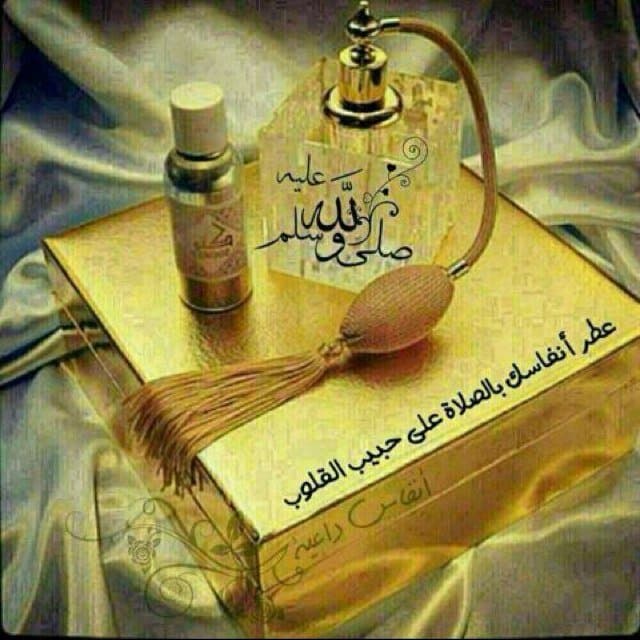 صلى الله عليه وسلم
عطر أنفاسك بالصلاة على حبيب القلوب
أنفاس داعية